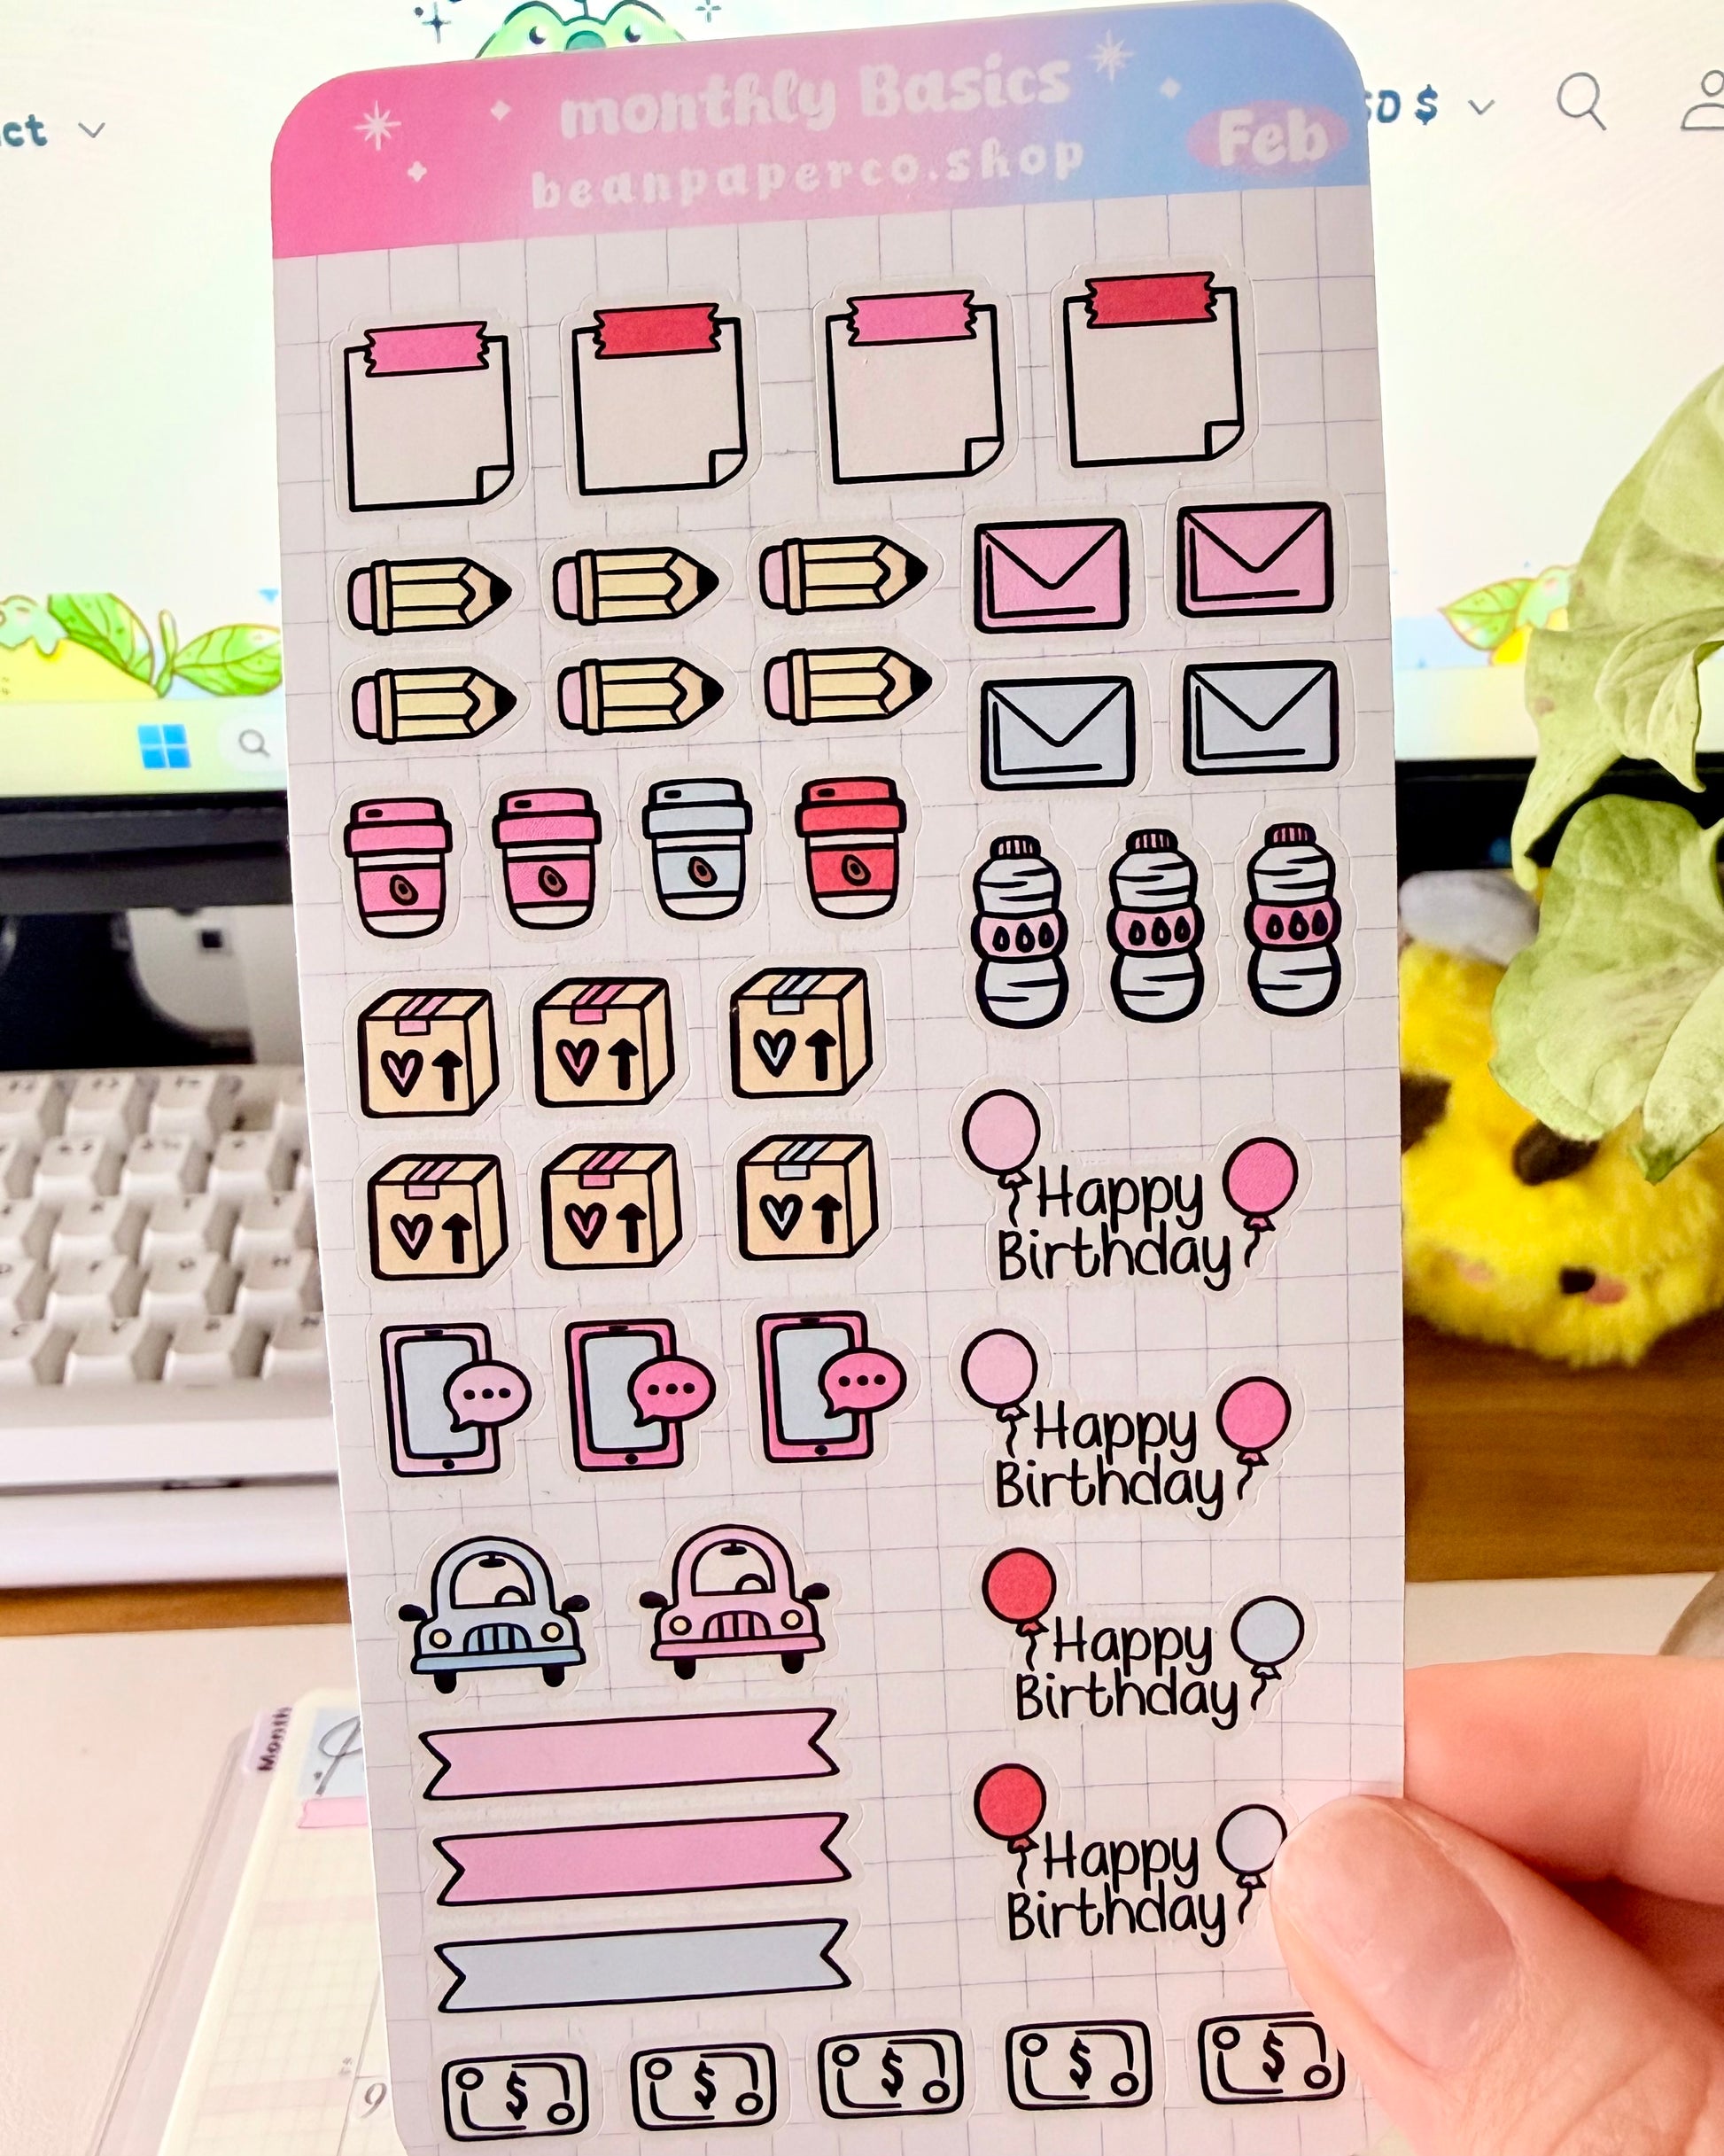 monthly Basics
beanpaperco.shop
Feb
D $
ct
Happy
Birthday
Happy
Birthday
Happy
Birthday
Happy
Birthday
Month
$ $ $ $ $
9